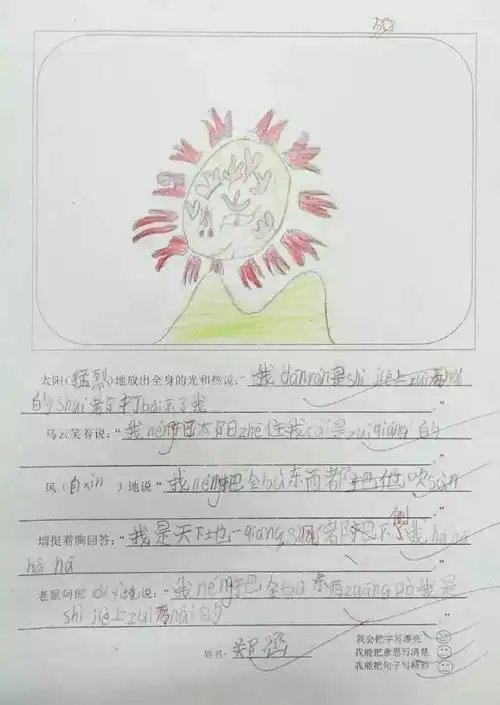 太阳（猛烈）地放出全身的光和热说：“我dānrán是shì jiè上zuì
的shuí都打bài不了我 ”
乌云笑着说：“我néng把太阳zhē住我cái是zuì qiáng的
”
风（自xìn ）地说“我néng把全bù东西都把他吹sàn
”
墙挺着胸回答：“我是天下地一qiáng 都 不倒了我hā hā
hā hā ”
老鼠阿郎 地说：“我néng把全bù东西zuān pò我是
shì jiè上zuì lì hài的 ”
姓名：郑
我会把字写漂亮
我能把意思写清楚
我能把句子写精彩